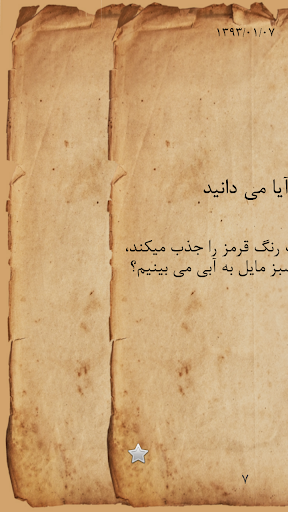 ۱۳۹۳/۰۱/۰۷
آیا می دانید
رنگ قرمز را جذب میکند،
مایل به آبی می بینیم؟
۷